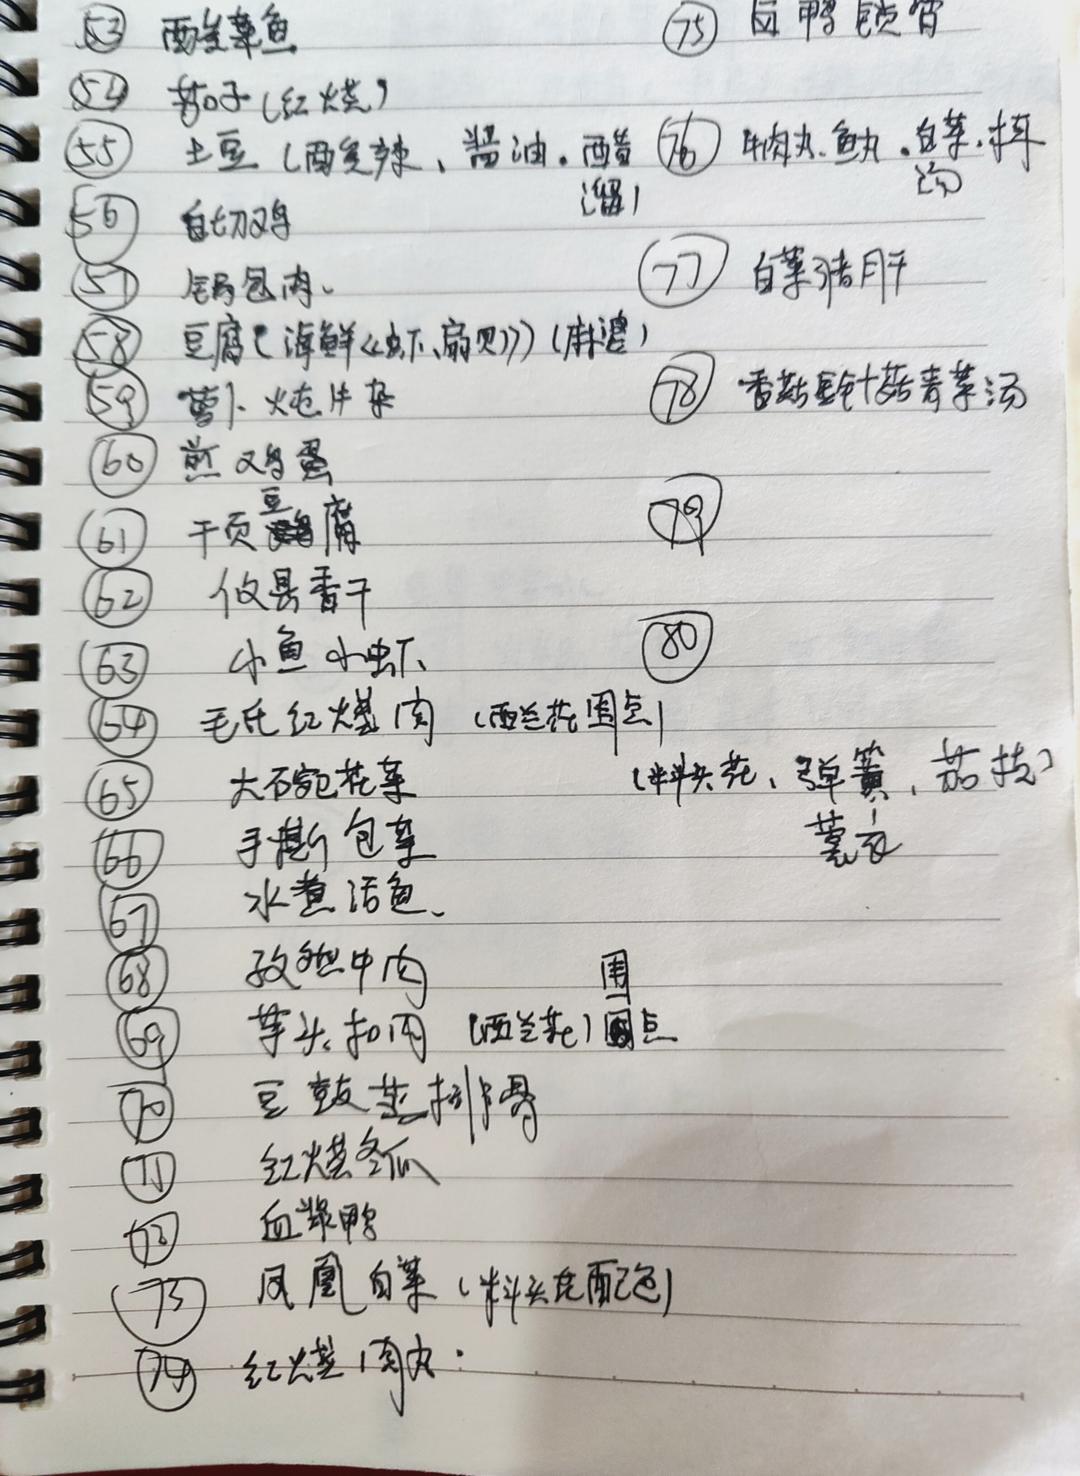 53 酸菜鱼
54 茄子(红烧)
55 土豆(酸辣、酱油.醋
溜)
56 白切鸡
57 锅包肉.
58 豆腐(海鲜《虾、扇贝》)(麻婆)
59 萝卜炖牛杂
60 煎鸡蛋
61 千页豆腐
62 攸县香干
63 小鱼小虾
64 毛氏红烧肉(西兰花围点)
65 大石窝花菜
66 手撕包菜
67 水煮活鱼、
68 孜然牛肉
围
69 芋头扣肉(西兰花)点
70 豆鼓蒸排骨
71 红烧冬瓜
72 血浆鸭
73 凤凰白菜(料头花配色)
74 红烧肉丸.
75 鸭锁骨
76 牛肉丸.鱼丸.白菜.
汤
77 白菜猪肝
78 香菇金针菇青菜汤
79
80
(料头花、弹簧、茄枝)
蓑衣